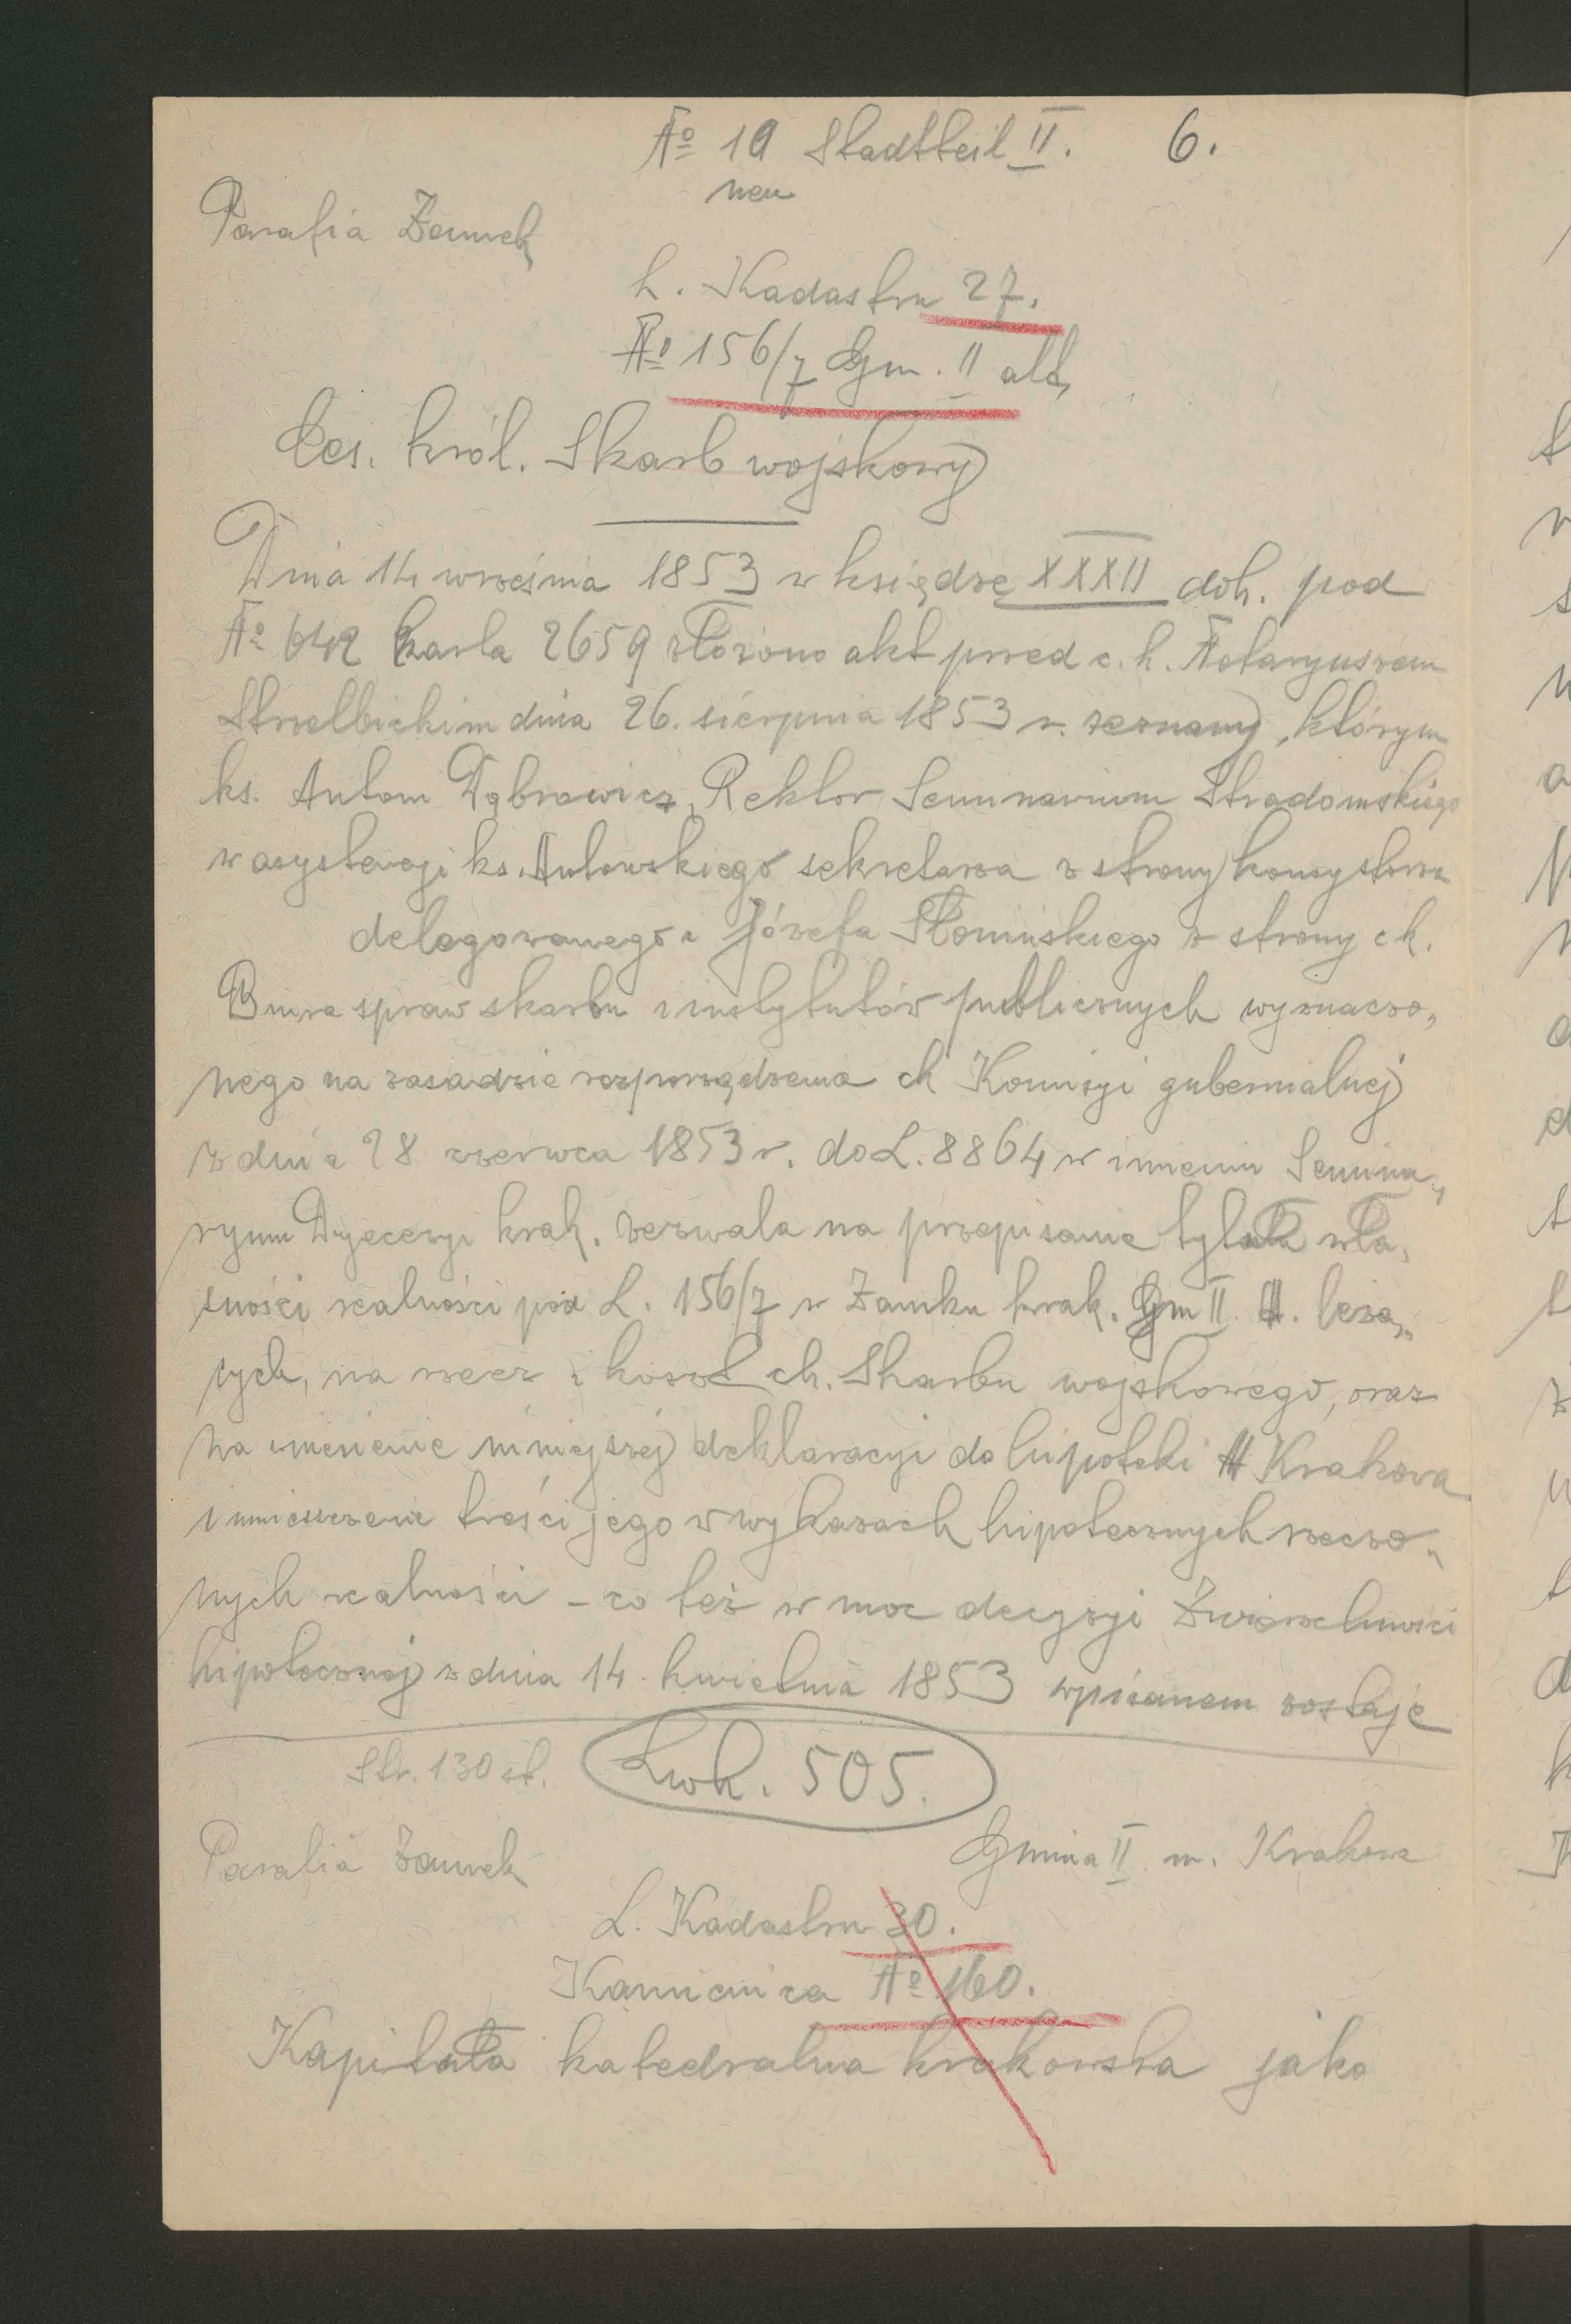 No 19 Stadtteil II. 6.
neu
Parafia Zamek
L. Kadastru 27.
No 156/7 Gm. II alt,
Ces. król. Skarb wojskowy
Dnia 14 września 1853 w księdze XXXII dok. pod
No 642 karta 2659 złożono akt przed c. k. Notaryuszem
Strzelbickim dnia 26. sierpnia 1853 r. zeznany, którym
ks. Antoni Dąbrowicz, Rektor Seminarium Stradomskiego
w asystencji ks. Antowskiego sekretarza z strony konsystorza
delegowanego i Józefa Słomińskiego z strony ck.
Biura spraw skarbu i instytutów publicznych wyznaczo„
nego na zasadzie rozporządzenia ck Komisyi gubernialnej
z dnia 28 czerwca 1853 r. do L. 8864 w imieniu Semina„
ryum Dyecezyi krak. zezwala na przepisanie tytułu wła„
sności realności pod L. 156/7 w Zamku krak. Gm II. leżą„
cych, na rzecz i koszt ck. Skarbu wojskowego, oraz
na wniesienie niniejszej deklaracyi do hipoteki M Krakowa
i umieszczenie treści jego w wykazach hipotecznych rzeczo„
nych realności - co też w moc decyzyi Zwierzchności
hipotecznej z dnia 14. kwietnia 1853 wpisanem zostaje
Str. 130 st. Lwh. 505.
Parafia Zamek Gmina II m. Krakowa
L. Kadastru 30.
Kamienica No 160.
Kapituła katedralna krakowska jako